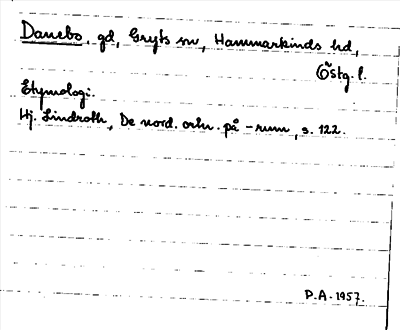 Danebo, gd, Gryts sn, Hammarkinds hd,
Östg. l.
Etymologi.
Hj. Lindroth, De nord. ortn. på -rum, s. 122.
P.A. 1957.